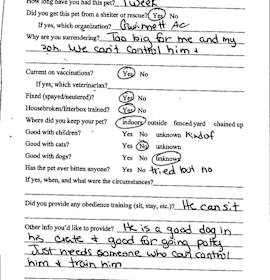 How long have you had this pet? 1 week
Did you get this pet from a shelter or rescue? Yes No
If yes, which organization? Gwinnett AC
Why are you surrendering? Too big for me and my
son. We can't control him +
Current on vaccinations? Yes No
If yes, which veterinarian?
Fixed (spayed/neutered)? Yes No
Housebroken/litterbox trained? Yes No
Where did you keep your pet? indoors outside fenced yard chained up
Good with children? Yes No unknown Kind of
Good with cats? Yes No unknown
Good with dogs? Yes No unknown
Has the pet ever bitten anyone? Yes No tried but no
If yes, when, and what were the circumstances?
Did you provide any obedience training (sit, stay, etc.)? He can sit
Other info you'd like to provide? He is a good dog in
his crate + good for going potty
Just needs someone who can control
him + train him